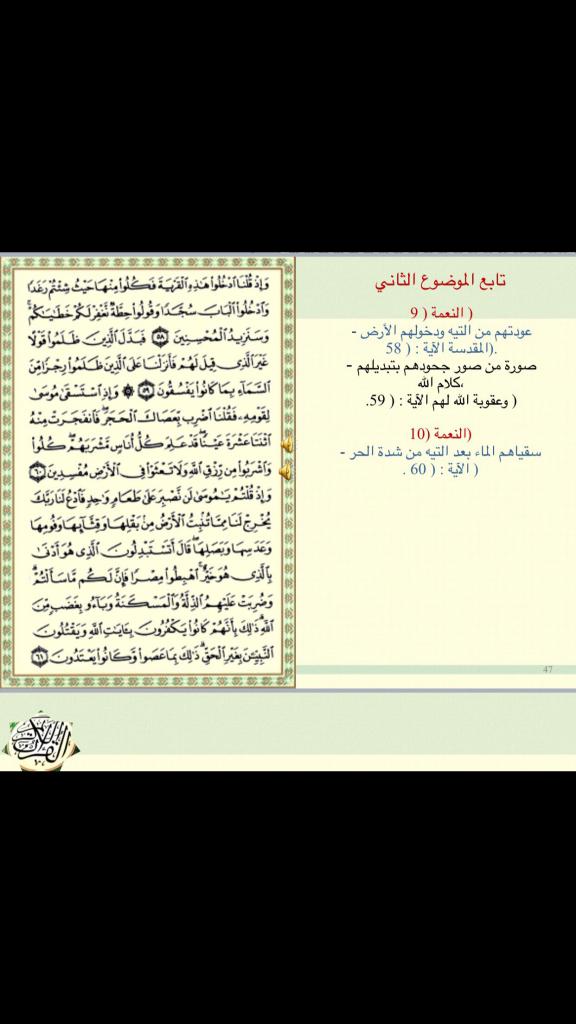 تابع الموضوع الثاني
( النعمة ( 9
عودتهم من التيه ودخولهم الأرض -
.(المقدسة الآية : ( 58
صورة من صور جحودهم بتبديلهم -
،كلام الله
( وعقوبة الله لهم الآية : ( 59.
(النعمة (10
سقياهم الماء بعد التيه من شدة الحر -
( الآية : ( 60 .
47
وَإِذْ قُلْنَا ادْخُلُوا هَٰذِهِ الْقَرْيَةَ فَكُلُوا مِنْهَا حَيْثُ شِئْتُمْ رَغَدًا
وَادْخُلُوا الْبَابَ سُجَّدًا وَقُولُوا حِطَّةٌ نَّغْفِرْ لَكُمْ خَطَايَاكُمْ
وَسَنَزِيدُ الْمُحْسِنِينَ ٥٨ فَبَدَّلَ الَّذِينَ ظَلَمُوا قَوْلًا
غَيْرَ الَّذِي قِيلَ لَهُمْ فَأَنزَلْنَا عَلَى الَّذِينَ ظَلَمُوا رِجْزًا مِّنَ
السَّمَاءِ بِمَا كَانُوا يَفْسُقُونَ ٥٩ ۞ وَإِذِ اسْتَسْقَىٰ مُوسَىٰ
لِقَوْمِهِ فَقُلْنَا اضْرِب بِّعَصَاكَ الْحَجَرَ فَانفَجَرَتْ مِنْهُ
اثْنَتَا عَشْرَةَ عَيْنًا قَدْ عَلِمَ كُلُّ أُنَاسٍ مَّشْرَبَهُمْ كُلُوا
وَاشْرَبُوا مِن رِّزْقِ اللَّهِ وَلَا تَعْثَوْا فِي الْأَرْضِ مُفْسِدِينَ ٦٠
وَإِذْ قُلْتُمْ يَا مُوسَىٰ لَن نَّصْبِرَ عَلَىٰ طَعَامٍ وَاحِدٍ فَادْعُ لَنَا رَبَّكَ
يُخْرِجْ لَنَا مِمَّا تُنبِتُ الْأَرْضُ مِن بَقْلِهَا وَقِثَّائِهَا وَفُومِهَا
وَعَدَسِهَا وَبَصَلِهَا قَالَ أَتَسْتَبْدِلُونَ الَّذِي هُوَ أَدْنَىٰ
بِالَّذِي هُوَ خَيْرٌ اهْبِطُوا مِصْرًا فَإِنَّ لَكُم مَّا سَأَلْتُمْ
وَضُرِبَتْ عَلَيْهِمُ الذِّلَّةُ وَالْمَسْكَنَةُ وَبَاءُو بِغَضَبٍ مِّنَ
اللَّهِ ذَٰلِكَ بِأَنَّهُمْ كَانُوا يَكْفُرُونَ بِآيَاتِ اللَّهِ وَيَقْتُلُونَ
النَّبِيِّينَ بِغَيْرِ الْحَقِّ ذَٰلِكَ بِمَا عَصَوا وَّكَانُوا يَعْتَدُونَ ٦١